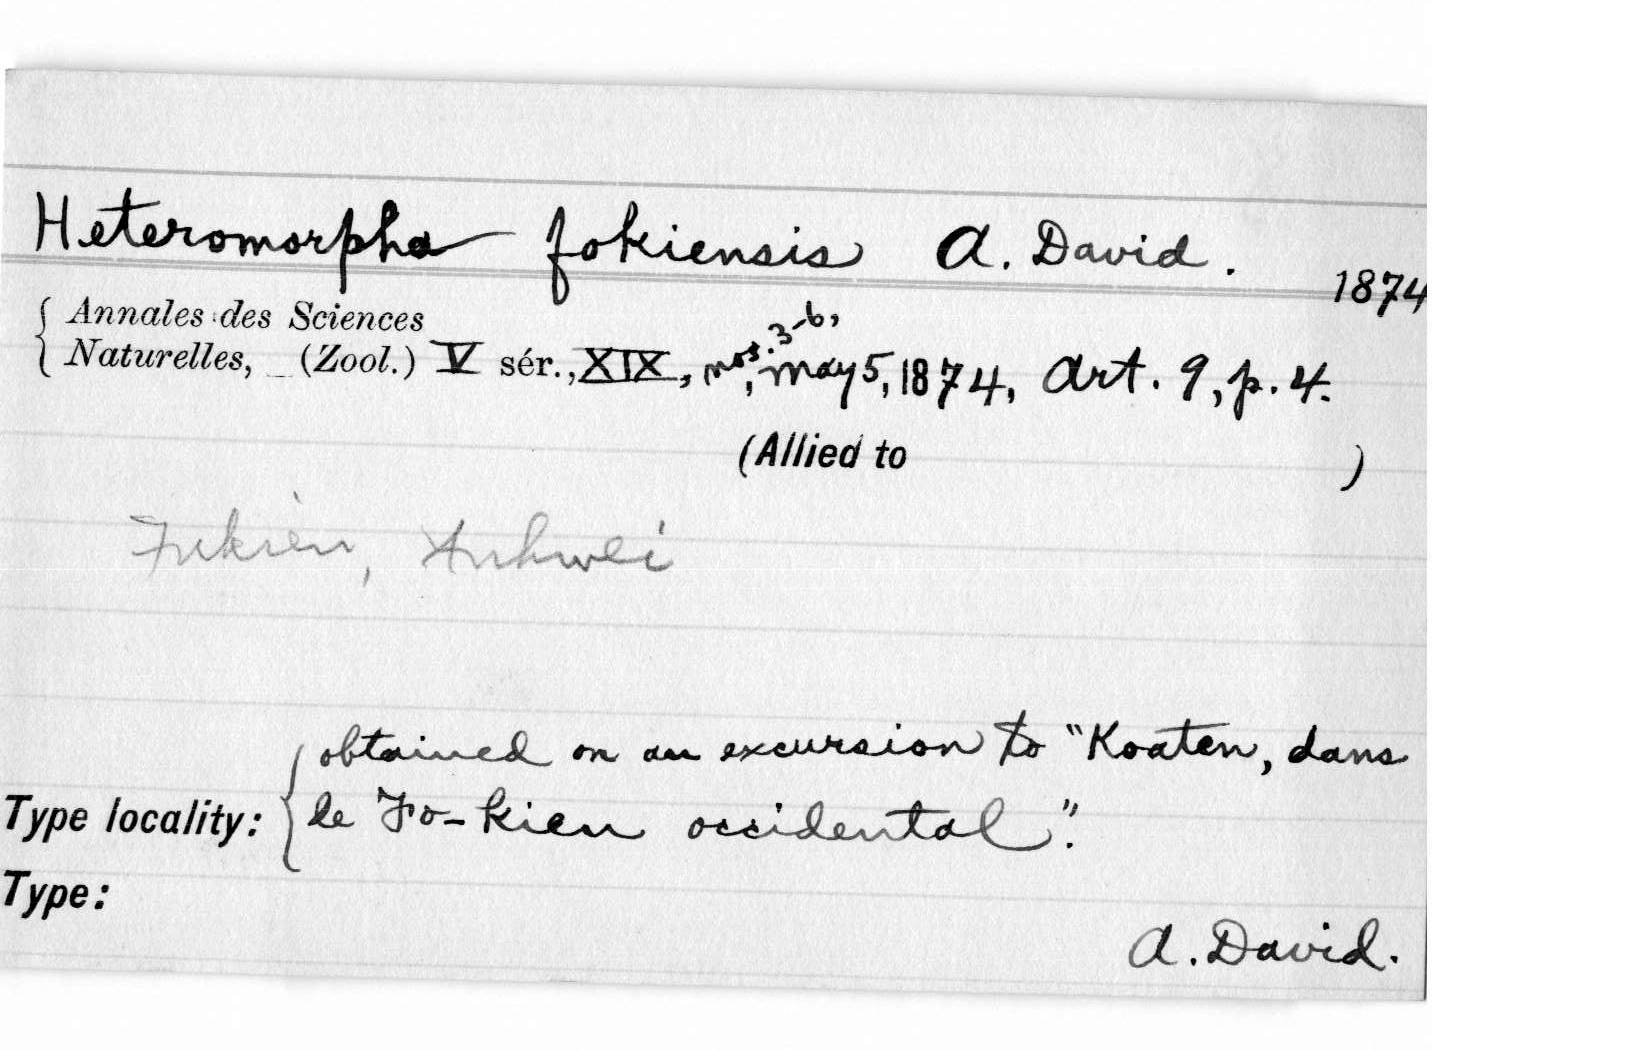 Heteromorpha fokiensis A. David. 1874
Annales des Sciences
Naturelles, (Zool.) V sér., XIX, nos. 3-6, May 5, 1874, Art. 9, p. 4.
(Allied to )
Fukien, Anhwei
obtained on an excursion to "Koaten, dans
Type locality: le Fo-kien occidental".
Type:
A. David.